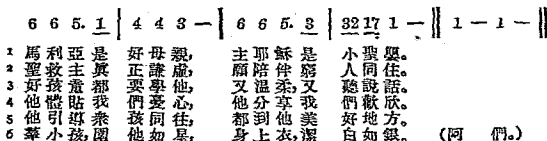 6 6 5. 1 | 4 4 3 — | 6 6 5. 3 | 32 17 1 — ‖ 1 — 1 — ‖
1 馬利亞是 好母親, 主耶穌是 小聖嬰。
2 聖救主眞 正謙虛, 願陪伴窮 人同住。
3 好孩童都 要學他, 又溫柔又 聽說話。
4 他體貼我 們憂心, 他分享我 們歡欣。
5 他引導衆 孩同往, 都到他美 好地方。
6 羣小孩圍 他如星, 身上衣潔 白如銀。 (阿 們。)